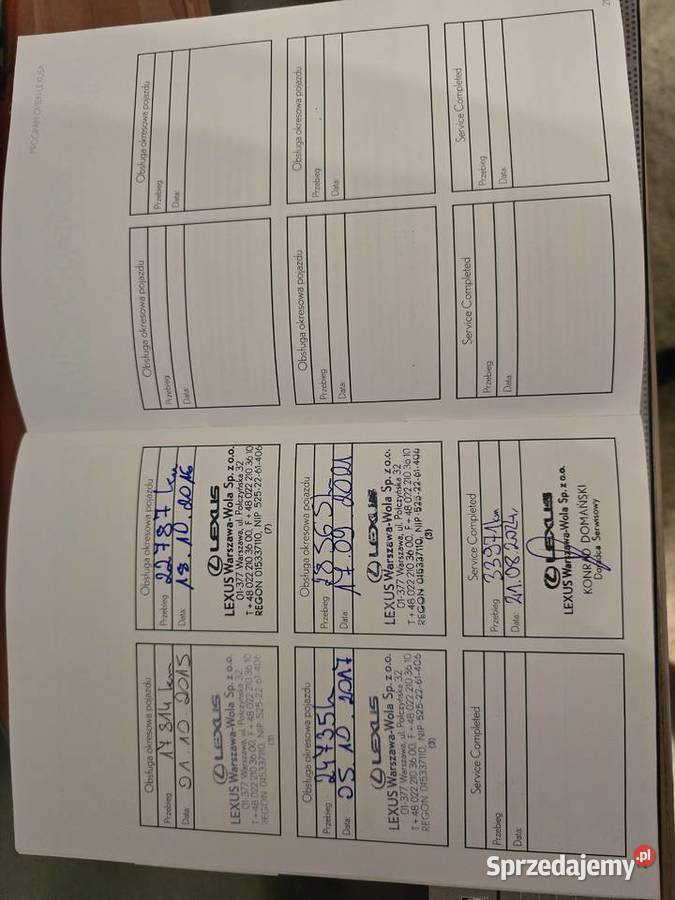 Obsługa okresowa pojazdu
Przebieg 17814 km
Data: 01.10.2015
LEXUS
LEXUS Warszawa-Wola Sp. z o.o.
01-377 Warszawa, ul. Połczyńska 32
T + 48 022 210 36 00, F + 48 022 210 36 10
REGON 015337110, NIP 525-22-61-406
Obsługa okresowa pojazdu
Przebieg 22787 km
Data: 18.10.2016
LEXUS
LEXUS Warszawa-Wola Sp. z o.o.
01-377 Warszawa, ul. Połczyńska 32
T + 48 022 210 36 00, F + 48 022 210 36 10
REGON 015337110, NIP 525-22-61-406
(7)
Obsługa okresowa pojazdu
Przebieg 24735
Data: 05.10.2017
LEXUS
LEXUS Warszawa-Wola Sp. z o.o.
01-377 Warszawa, ul. Połczyńska 32
T + 48 022 210 36 00, F + 48 022 210 36 10
REGON 015337110, NIP 525-22-61-406
(3)
Obsługa okresowa pojazdu
Przebieg
Data: 17.09.2021
LEXUS
LEXUS Warszawa-Wola Sp. z o.o.
01-377 Warszawa, ul. Połczyńska 32
T + 48 022 210 36 00, F + 48 022 210 36 10
REGON 015337110, NIP 525-22-61-406
(3)
Service Completed
Przebieg
Data:
Service Completed
Przebieg 33971 km
Data: 11.08.2024r.
LEXUS
LEXUS Warszawa-Wola Sp. z o.o.
KONRAD DOMAŃSKI
Doradca Serwisowy
PROGRAM OPIEKI LEXUSA
Obsługa okresowa pojazdu
Przebieg
Data:
Obsługa okresowa pojazdu
Przebieg
Data:
Obsługa okresowa pojazdu
Przebieg
Data:
Obsługa okresowa pojazdu
Przebieg
Data:
Service Completed
Przebieg
Data:
Service Completed
Przebieg
Data:
Sprzedajemy.pl